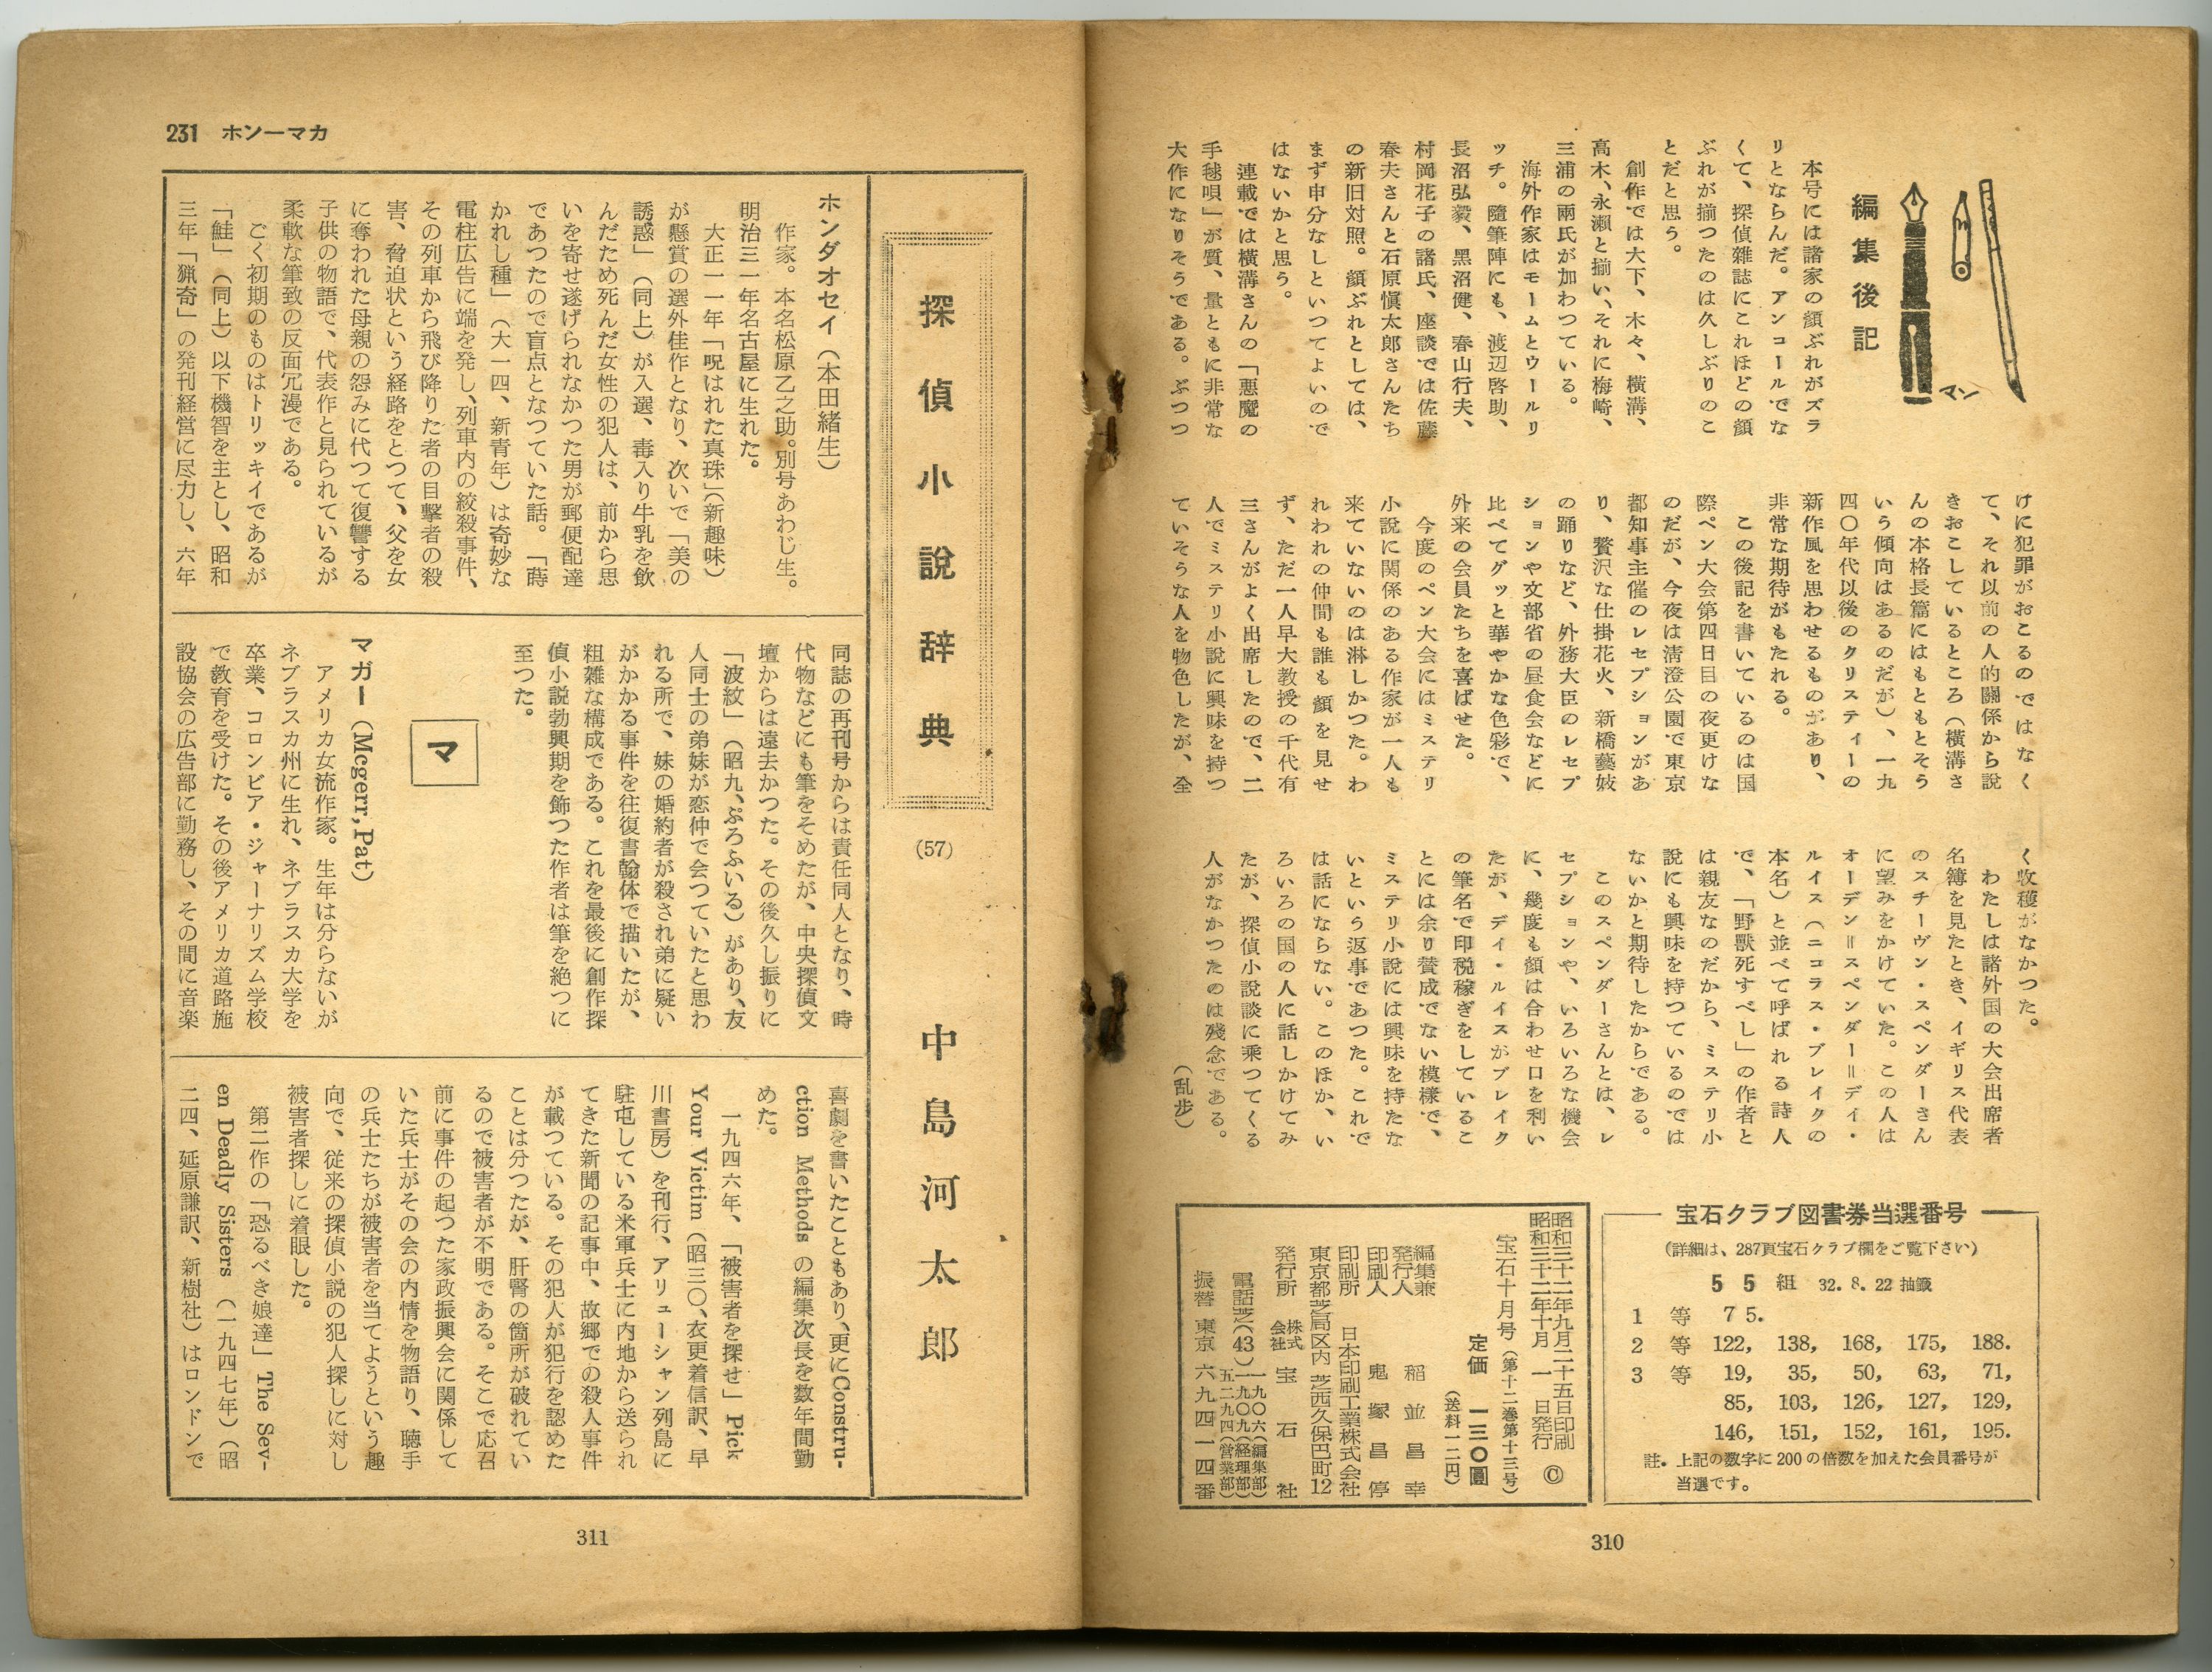 編集後記
マン
本号には諸家の顔ぶれがズラ
リとならんだ。アンコールでな
くて、探偵雑誌にこれほどの顔
ぶれが揃つたのは久しぶりのこ
とだと思う。
創作では大下、木々、横溝、
高木、永瀬と揃い、それに梅崎、
三浦の両氏が加わつている。
海外作家はモームとウールリ
ッチ。随筆陣にも、渡辺啓助、
長沼弘毅、黒沼健、春山行夫、
村岡花子の諸氏、座談では佐藤
春夫さんと石原愼太郎さんたち
の新旧対照。顔ぶれとしては、
まず申分なしといつてよいので
はないかと思う。
連載では横溝さんの「悪魔の
手毬唄」が質、量ともに非常な
大作になりそうである。ぶつつ
けに犯罪がおこるのではなく
て、それ以前の人的關係から説
きおこしているところ（横溝さ
んの本格長篇にはもともとそう
いう傾向はあるのだが）、一九
四〇年代以後のクリスティーの
新作風を思わせるものがあり、
非常な期待がもたれる。
この後記を書いているのは国
際ペン大会第四日目の夜更けな
のだが、今夜は清澄公園で東京
都知事主催のレセプションがあ
り、贅沢な仕掛花火、新橋藝妓
の踊りなど、外務大臣のレセプ
ションや文部省の昼食会などに
比べてグッと華やかな色彩で、
外来の会員たちを喜ばせた。
今度のペン大会にはミステリ
小説に関係のある作家が一人も
来ていないのは淋しかつた。わ
れわれの仲間も誰も顔を見せ
ず、ただ一人早大教授の千代有
三さんがよく出席したので、二
人でミステリ小説に興味を持つ
ていそうな人を物色したが、全
く収穫がなかつた。
わたしは諸外国の大会出席者
名簿を見たとき、イギリス代表
のスチーヴン・スペンダーさん
に望みをかけていた。この人は
オーデン＝スペンダー＝デイ・
ルイス（ニコラス・ブレイクの
本名）と並べて呼ばれる詩人
で、「野獣死すべし」の作者と
は親友なのだから、ミステリ小
説にも興味を持つているのでは
ないかと期待したからである。
このスペンダーさんとは、レ
セプションや、いろいろな機会
に、幾度も顔は合わせ口を利い
たが、デイ・ルイスがブレイク
の筆名で印税稼ぎをしているこ
とには余り賛成でない模様で、
ミステリ小説には興味を持たな
いという返事であつた。これで
は話にならない。このほか、い
ろいろの国の人に話しかけてみ
たが、探偵小説談に乘つてくる
人がなかつたのは残念である。
（乱歩）
宝石クラブ図書券当選番号
（詳細は、287頁宝石クラブ欄をご覧下さい）
55組 32.8.22 抽籤
1等 75.
2等 122, 138, 168, 175, 188.
3等 19, 35, 50, 63, 71,
85, 103, 126, 127, 129,
146, 151, 152, 161, 195.
註．上記の数字に200の倍数を加えた会員番号が
当選です。
昭和三十二年九月二十五日印刷
昭和三十二年十月一日発行 ©
宝石十月号（第十二巻第十三号）
定価 一三〇圓
（送料一二円）
編集兼発行人 稲並昌幸
印刷人 鬼塚昌停
印刷所 日本印刷工業株式会社
東京都芝局区内 芝西久保巴町12
発行所 株式会社 宝石社
電話芝(43) 一九〇六（編集部）
一九〇九（経理部）
五二九四（営業部）
振替 東京 六九四一四番
310
231 ホンーマカ
探偵小説辞典
(57)
中島河太郎
ホンダオセイ（本田緒生）
作家。本名松原乙之助。別号あわじ生。
明治三一年名古屋に生れた。
大正一一年「呪はれた真珠」（新趣味）
が懸賞の選外佳作となり、次いで「美の
誘惑」（同上）が入選、毒入り牛乳を飲
んだため死んだ女性の犯人は、前から思
いを寄せ遂げられなかつた男が郵便配達
であつたので盲点となつていた話。「蒔
かれし種」（大一四、新青年）は奇妙な
電柱広告に端を発し、列車内の絞殺事件、
その列車から飛び降りた者の目撃者の殺
害、脅迫状という経路をとつて、父を女
に奪われた母親の怨みに代つて復讐する
子供の物語で、代表作と見られているが
柔軟な筆致の反面冗漫である。
ごく初期のものはトリッキイであるが
「鮭」（同上）以下機智を主とし、昭和
三年「猟奇」の発刊経営に尽力し、六年
同誌の再刊号からは責任同人となり、時
代物などにも筆をそめたが、中央探偵文
壇からは遠去かつた。その後久し振りに
「波紋」（昭九、ぷろふいる）があり、友
人同士の弟妹が恋仲で会つていたと思わ
れる所で、妹の婚約者が殺され弟に疑い
がかかる事件を往復書翰体で描いたが、
粗雑な構成である。これを最後に創作探
偵小説勃興期を飾つた作者は筆を絶つに
至つた。
マ
マガー（Mcgerr, Pat）
アメリカ女流作家。生年は分らないが
ネブラスカ州に生れ、ネブラスカ大学を
卒業、コロンビア・ジャーナリズム学校
で教育を受けた。その後アメリカ道路施
設協会の広告部に勤務し、その間に音楽
喜劇を書いたこともあり、更にConstru-
ction Methods の編集次長を数年間勤
めた。
一九四六年、「被害者を探せ」Pick
Your Victim（昭三〇、衣更着信訳、早
川書房）を刊行、アリューシャン列島に
駐屯している米軍兵士に内地から送られ
てきた新聞の記事中、故郷での殺人事件
が載つている。その犯人が犯行を認めた
ことは分つたが、肝腎の箇所が破れてい
るので被害者が不明である。そこで応召
前に事件の起つた家政振興会に関係して
いた兵士がその会の内情を物語り、聴手
の兵士たちが被害者を当てようという趣
向で、従来の探偵小説の犯人探しに対し
被害者探しに着眼した。
第二作の「恐るべき娘達」The Sev-
en Deadly Sisters（一九四七年）（昭
二四、延原謙訳、新樹社）はロンドンで
311